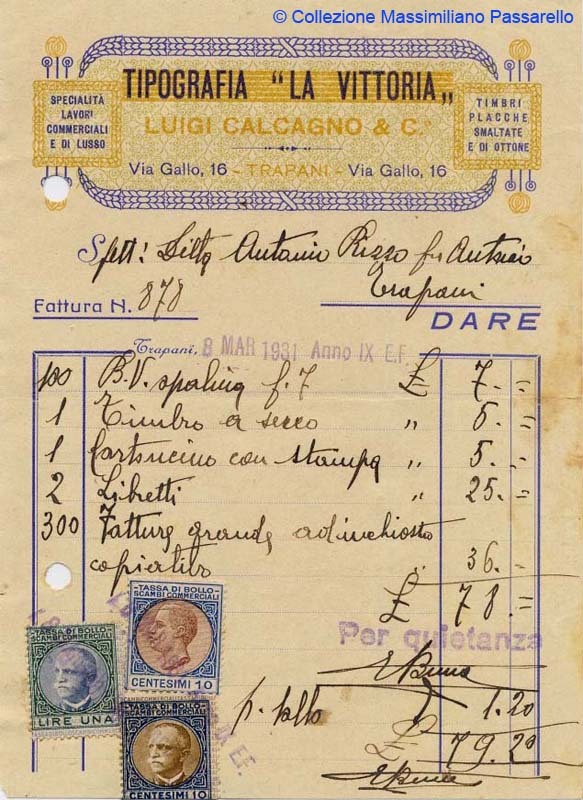 © Collezione Massimiliano Passarello
TIPOGRAFIA "LA VITTORIA"
LUIGI CALCAGNO & C.
Via Gallo, 16 - TRAPANI - Via Gallo, 16
SPECIALITÀ
LAVORI
COMMERCIALI
E DI LUSSO
TIMBRI
PLACCHE
SMALTATE
E DI OTTONE
Spett: Ditta Antonio Rizzo fu Antonio
Trapani
Fattura N. 878
DARE
Trapani, 8 MAR 1931 Anno IX E.F.
100 B.V. spalina f. 7 £ 7.=
1 Timbro a secco " 5.=
1 Cartoncino con stampa " 5.=
2 Libretti " 25.=
300 Fatture grande ad inchiostro
copiativo 36.=
£ 78.=
Per quietanza
p. bollo 1.20
£ 79.20
TASSA DI BOLLO
SCAMBI COMMERCIALI
CENTESIMI 10
TASSA DI BOLLO
SCAMBI COMMERCIALI
LIRE UNA
TASSA DI BOLLO
SCAMBI COMMERCIALI
CENTESIMI 10